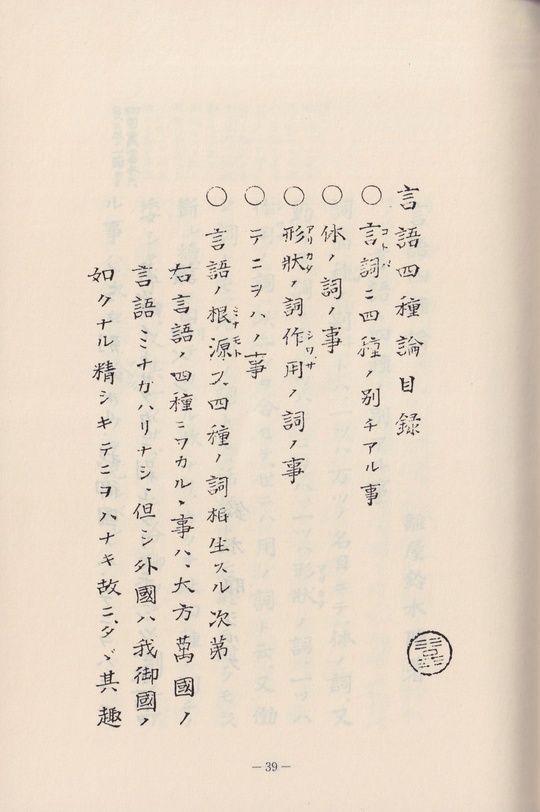 言語四種論目録
○言詞ニ四種ノ別チアル事
コトバ
○体ノ詞ノ事
○形状ノ詞作用ノ詞ノ事
アリカタ
シワザ
○テニヲハノ事
○言語ノ根源又四種ノ詞相生スル次第
ミナモト
右言語ノ四種ニワカルヽ事ハ、大方萬國ノ
言語ミナカハリナシ、但シ外國ハ我御國ノ
如クナル精シキテニヲハナキ故ニ、タヾ其趣
—39—